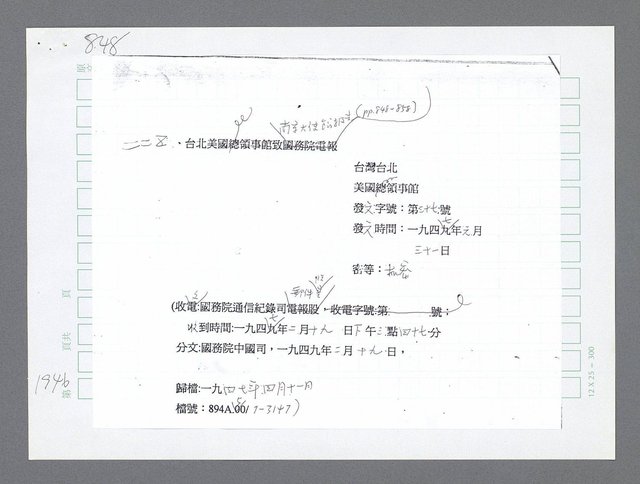 848
南京大使館報告
(pp.848-858)
二二五、台北美國總領事館致國務院電報
台灣台北
美國總領事館
發文字號：第三十七號
發文時間：一九四九年元月
三十一日
密等：
(收電:國務院通信紀錄司電報股，收電字號:第 號；
收到時間:一九四九年二月十九 日下午三點四十七分
分文:國務院中國司，一九四九年二月十九日，
1946
第 頁共 頁
歸檔:一九四七年四月十一月
檔號：894A.00/ 7-3147)
12 X 25 - 300